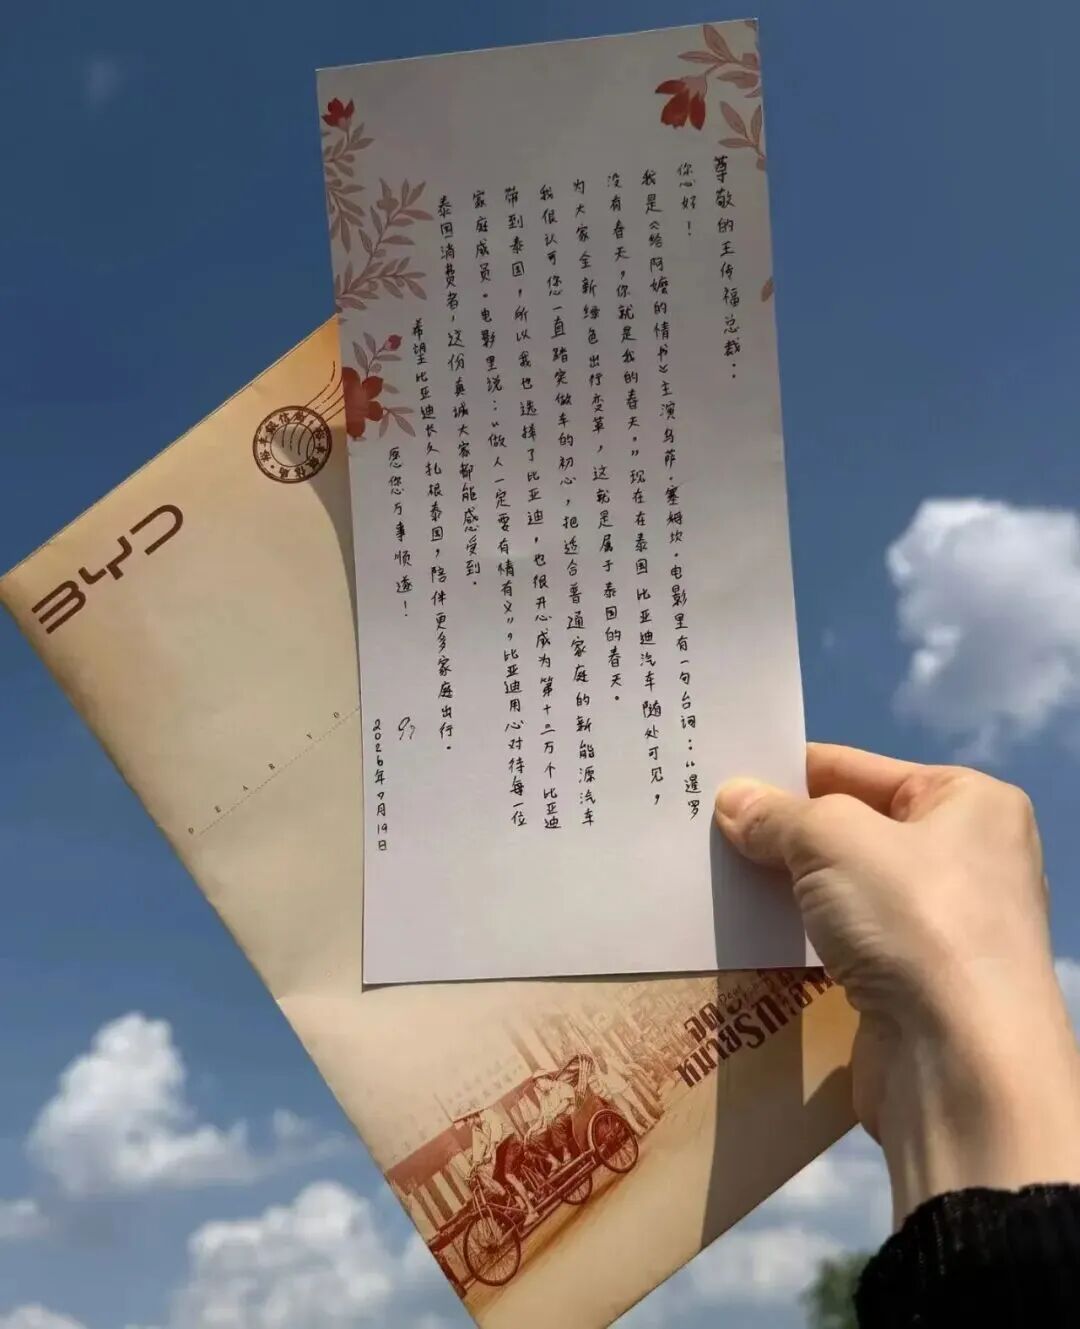 尊敬的王传福总裁：
您好！
我是《给阿嬷的情书》主演乌萨·塞姆坎。电影里有一句台词：“暹罗
没有春天，你就是我的春天”现在在泰国比亚迪汽车随处可见，
为大家全新绿色出行变革，这就是属于泰国的春天。
我很认可您一直踏实做车的初心，把适合普通家庭的新能源汽车
带到泰国，所以我也选择了比亚迪，也很开心成为第十二万个比亚迪
家庭成员。电影里说：“做人一定要有情有义”，比亚迪用心对待每一位
泰国消费者，这份真诚大家都能感受到。
希望比亚迪长久扎根泰国，陪伴更多家庭出行。
愿您万事顺遂！
2026年7月19日
BYD
DEAR BYD
จดหมายรัก